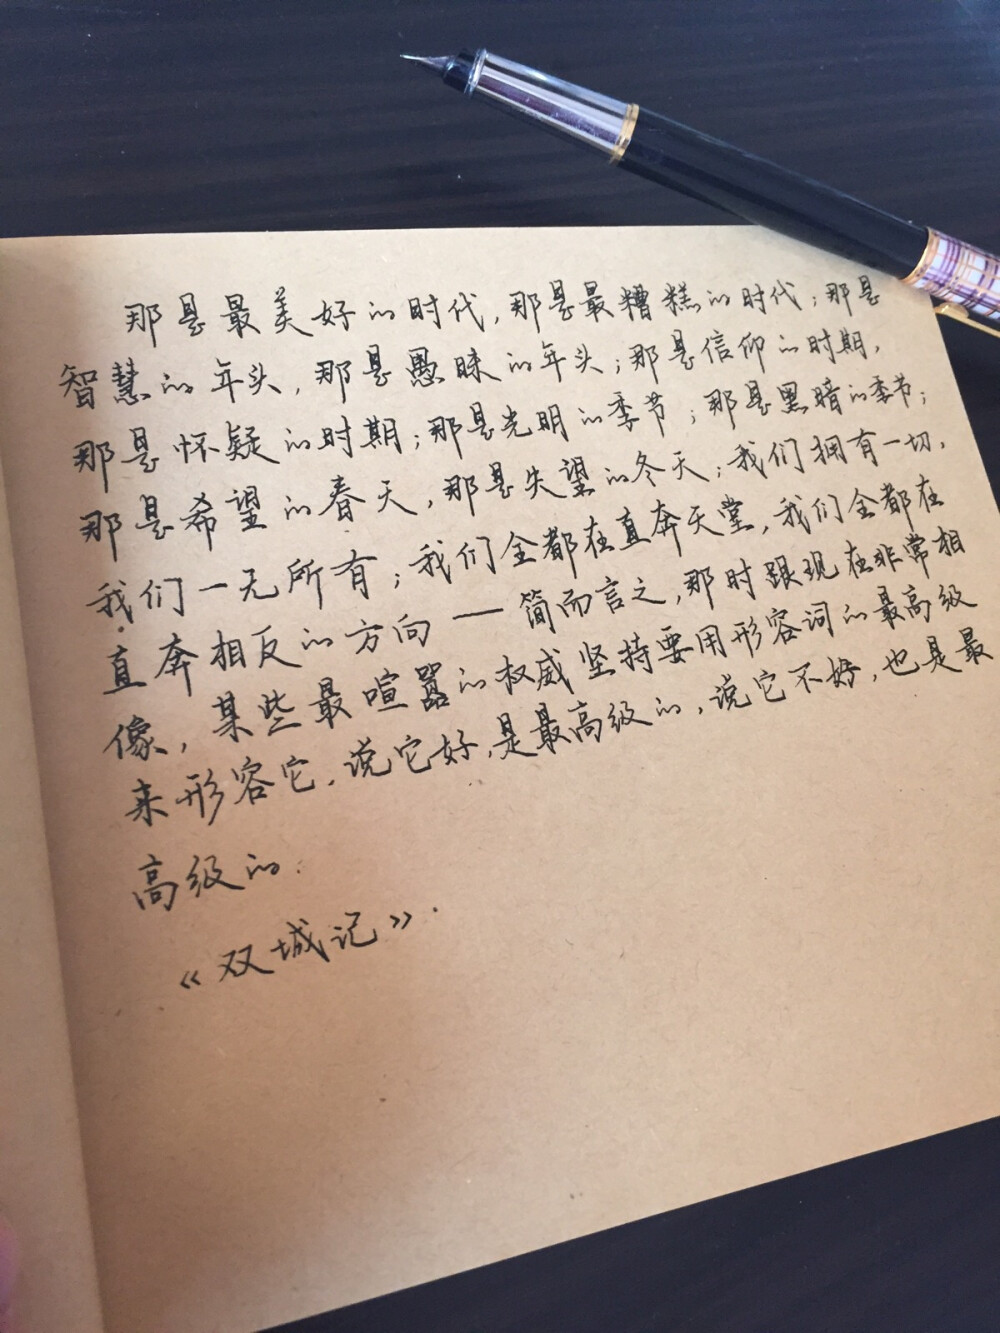 那是最美好的时代，那是最糟糕的时代；那是
智慧的年头，那是愚昧的年头；那是信仰的时期，
那是怀疑的时期；那是光明的季节；那是黑暗的季节；
那是希望的春天，那是失望的冬天；我们拥有一切，
我们一无所有；我们全都在直奔天堂，我们全都在
直奔相反的方向——简而言之，那时跟现在非常相
像，某些最喧嚣的权威坚持要用形容词的最高级
来形容它，说它好，是最高级的，说它不好，也是最
高级的.
《双城记》.